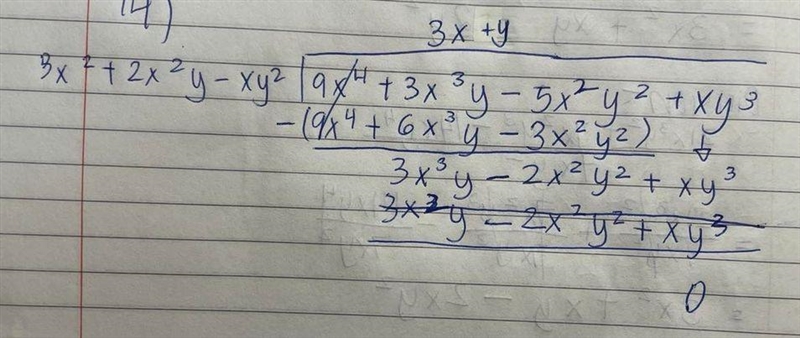 14)
3x + y
3x² + 2x²y - xy² | 9x⁴ + 3x³y - 5x²y² + xy³
-(9x⁴ + 6x³y - 3x²y²) ↓
3x³y - 2x²y² + xy³
3x³y - 2x²y² + xy³
0